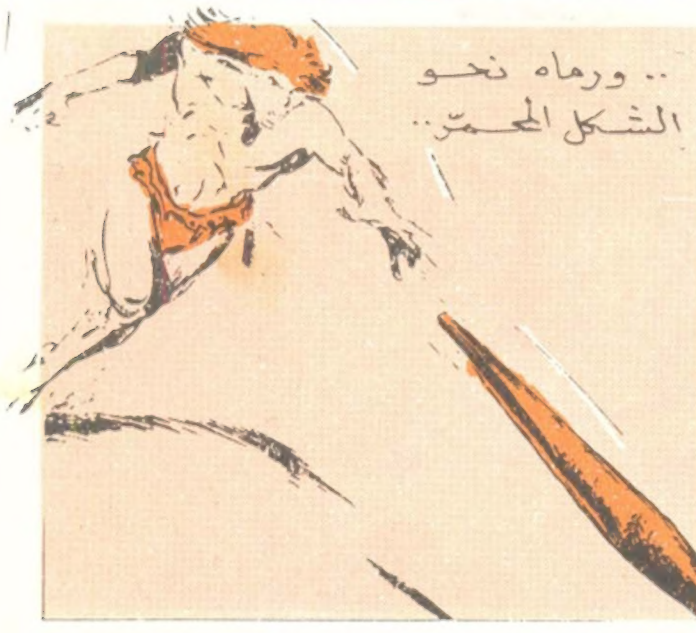 .. ورماه نحو
الشكل المحمرّ..